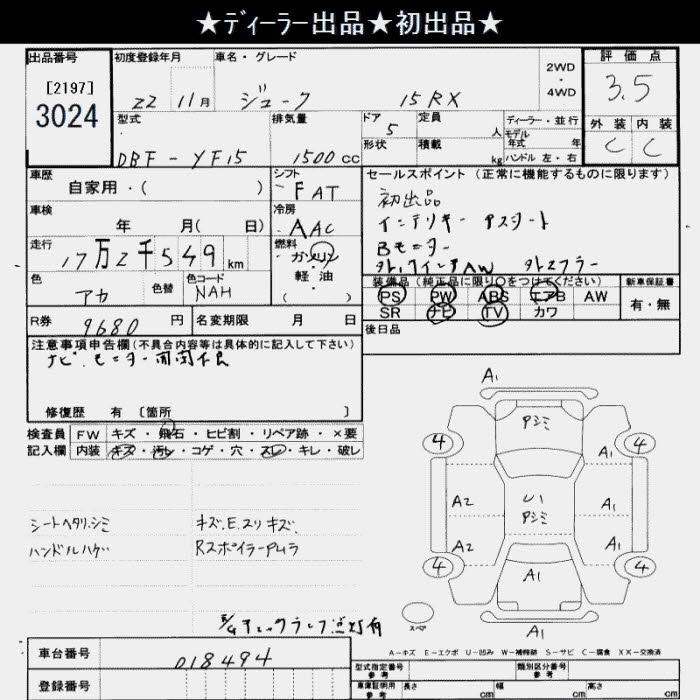 ★ディーラー出品★初出品★
出品番号 初度登録年月 車名・グレード 2WD・4WD 評価点
[2197]
3024 22 11月 ジューク 15RX 3.5
型式 排気量 ドア 定員 人 ディーラー・並行 外装 内装
DBF-YF15 1500cc 5 モデル年式 年 C C
形状 積載 kg ハンドル 左・右
車歴 シフト セールスポイント (正常に機能するものに限ります)
自家用・( ) FAT
車検 冷房 初出品
年 月( 日) AAC インテリキー アスシート
走行 燃料 Bモニター
17万2千549km ガソリン・軽油・( ) 外17インチAW 外マフラー
色 色替 色コード 装備品 (純正品に限り○をつけてください) 新車保証書
アカ NAH PS PW ABS エアB AW 有・無
SR ナビ TV カワ
R券 9680円 名変期限 月 日 後日品
注意事項申告欄(不具合内容等は具体的に記入して下さい)
ナビ.モニター開閉不良
修復歴 有 〔箇所 〕
検査員 FW キズ・飛石・ヒビ割・リペア跡・×要
記入欄 内装 キズ・汚レ・コゲ・穴・スレ・キレ・破レ
シートヘタリ.シミ キズ.E.スリキズ.
ハンドルハゲ Rスポイラーpムラ
E/gチェックランプ点灯有
A1
Pシミ
4 4
A1
A2 U1 A1
Pシミ
A2 A1
4 A1 4
スペア A1
A-キズ E-エクボ U-凹み W-補修跡 S-サビ C-腐食 XX-交換済
車台番号 018494 型式指定番号 参考 類別区分番号 参考
登録番号 車庫証明用 参考 長さ cm 幅 cm 高さ cm